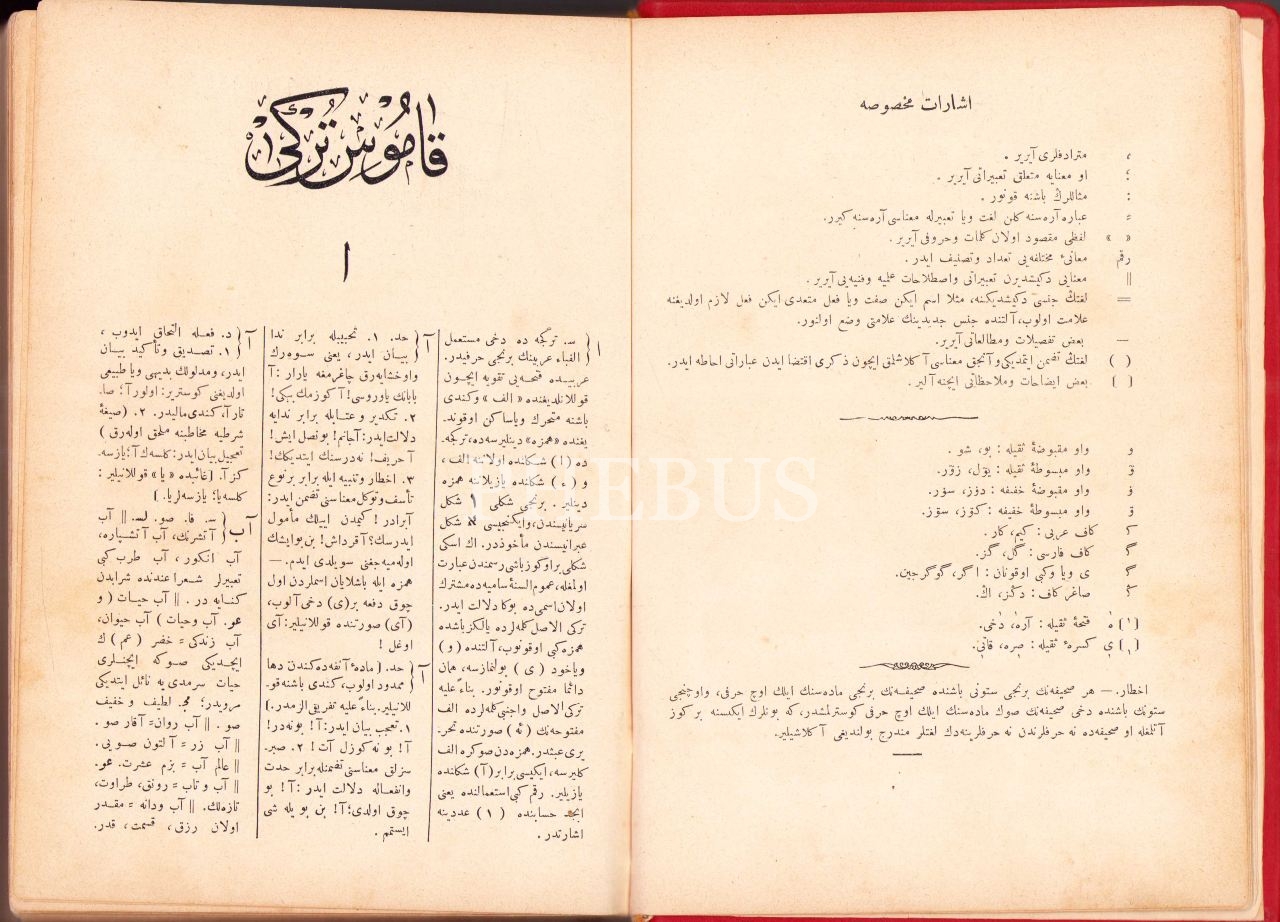 اشارات مخصوصه
، مترادفلری آیریر .
؛ او معنایه متعلق تعبیراتی آیریر .
: مثاللرڭ باشنه قونور .
= عباره آره‌سنه كلن لغت ویا تعبیرله معناسی آره‌سنه كیرر.
« » لفظی مقصود اولان كلمات وحروفی آیریر .
رقم معانئ مختلفه‌یی تعداد وتصنیف ایدر .
|| معنایی دكیشدیرن تعبیراتی واصطلاحات علمیه وفنیه‌یی آیریر .
== لغتڭ جنسی دكیشدیكنه، مثلا اسم ایكن صفت ویا فعل متعدی ایكن فعل لازم اولدیغنه
علامت اولوب، آلتنده جنس جدیدینك علامتی وضع اولنور.
— بعض تفصیلات ومطالعاتی آیریر.
( ) لغتڭ تضمن ایتمدیكی وآنجق معناسی آكلاشلمق ایچون ذكری اقتضا ایدن عباراتی احاطه ایدر.
[ ] بعض ایضاحات وملاحظاتی ایچنه آلیر .
و واو مقبوضۀ ثقیله : بو، شو .
واو مبسوطۀ ثقیله : یول، زور.
واو مقبوضۀ خفیفه : دوز، سور.
واو مبسوطۀ خفیفه : كوز، سوز.
ك كاف عربی : كیم، كار .
گ كاف فارسی : گل، گز.
ی ویا وكبی اوقونان : اگر، گوگرجین.
ڭ صاغر كاف : دڭز، اڭ.
فتحۀ ثقیله : آره، دخی.
كسرۀ ثقیله : صره، قاتی.
اخطار. — هر صحیفه‌نك برنجی ستونی باشنده صحیفه‌نك برنجی ماده‌سنك ایلك اوچ حرفی، واوچنجی
ستونك باشنده دخی صحیفه‌نك صوك ماده‌سنك ایلك اوچ حرفی كوسترلمشدر، كه بونلرك ایكسنه بر كوز
آتلغله او صحیفه‌ده نه حرفلرندن نه حرفلرینه‌دك لغتلر مندرج بولندیغی آكلاشیلیر.
قاموس تركی
ا
ا { س. تركجه ده دخی مستعمل
الفباء عربینك برنجی حرفیدر.
عربیده فتحه‌یی تقویه ایچون
قوللانلدیغنده «الف» وكندی
باشنه متحرك ویاساكن اوقوند-
یغنده «همزه» دینلیرسه ده، تركجه-
ده (ا) شكلنده اولاننه الف،
و (ء) شكلنده یازیلاننه همزه
دینلیر . برنجی شكلی شكل
سریانیسندن، وایكنجیسی א شكل
عبرانیسندن مأخوذدر. اك اسكی
شكلی براوكوزباشی رسمندن عبارت
اولمغله، عموم السنۀ سامیه ده مشترك
اولان اسمی ده بوكا دلالت ایدر.
تركی الاصل كلمه‌لرده یالكزباشده
همزه كبی اوقونوب، آلتنده (و)
ویاخود (ی) بولنمازسه، همان
دائما مفتوح اوقونور. بناءً علیه
تركی الاصل واجنبی كلمه‌لرده الف
مفتوحه‌نك (ئه) صورتنده تحر-
یری عبثدر. همزه‌دن صوكره الف
كلیرسه، ایكیسی برابر (آ) شكلنده
یازیلیر. رقم كبی استعمالنده یعنی
ابجد حسابنده (١) عددینه
اشارتدر .
آ { حد. ١. تحبیبله برابر ندا
بیان ایدر، یعنی سوه‌رك
واوخشایه‌رق چاغرمغه یارار : آ
بابانك یاوروسی! آ كوزمك ببكی!
٢. تكدیر و عتابله برابر ندایه
دلالت ایدر: آجانم! بو نصل ایش!
آ حریف! نه‌درسنك ایتدیكك!
٣. اخطار وتنبیه ایله برابر برنوع
تأسف وتوكل معناسنی تضمن ایدر:
آبرادر! كیمدن اییلك مأمول
ایدرسك؟ آ قرداش! بن بوایشك
اوله‌میه‌جغنی سویلدی ایدم. —
همزه ایله باشلایان اسملردن اول
چوق دفعه بر (ی) دخی آلوب،
(آی) صورتنده قوللانیلیر: آی
اوغل !
آ { حد. [مادۀ آنفه‌ده‌كندن دها
ممدود اولوب، كندی باشنه قو-
للانیلیر. بناء علیه تفریق الزمدر.]
١. تعجب بیان ایدر : آ! بونه‌در!
آ! بو نه كوزل آت! ٢. صبر-
سزلق معناسنی تضمنله برابر حدت
وانفعاله دلالت ایدر : آ! بو
چوق اولدی؛ آ! بن بویله شی
ایستمم .
آ { د. فعله التحاق ایدوب ،
١. تصدیق وتأكید بیان
ایدر، ومدلولك بدیهی ویا طبیعی
اولدیغنی كوستریر: اولور آ؛ صا-
تار آ، كندی مالیدر. ٢. (صیغۀ
شرطیه مخاطبنه ملحق اوله‌رق)
تعجیل بیان ایدر: كلسه‌ك آ؛ یازسه-
كز آ. [غائبده «یا» قوللانیلیر :
كلسه یا؛ یازسه‌لر یا.]
آب { س. فا. صو. || آب
آتشرنك، آب آتشپاره،
آب انكور، آب طرب كبی
تعبیرلر شعرا عندنده شرابدن
كنایه در . || آب حیات (و
عو. آب وحیات) آب حیوان،
آب زندكی = خضر (عم) ك
ایچدیكی صوكه ایچنلری
حیات سرمدی یه نائل ایتدیكی
مرویدر؛ مج. لطیف و خفیف
صو . || آب روان= آقار صو .
|| آب زر = آلتون صویی.
|| عالم آب = بزم عشرت. عو.
|| آب و تاب = رونق، طراوت،
تازه‌لك. || آب ودانه = مقدر
اولان رزق، قسمت، قدر.
PHEBUS